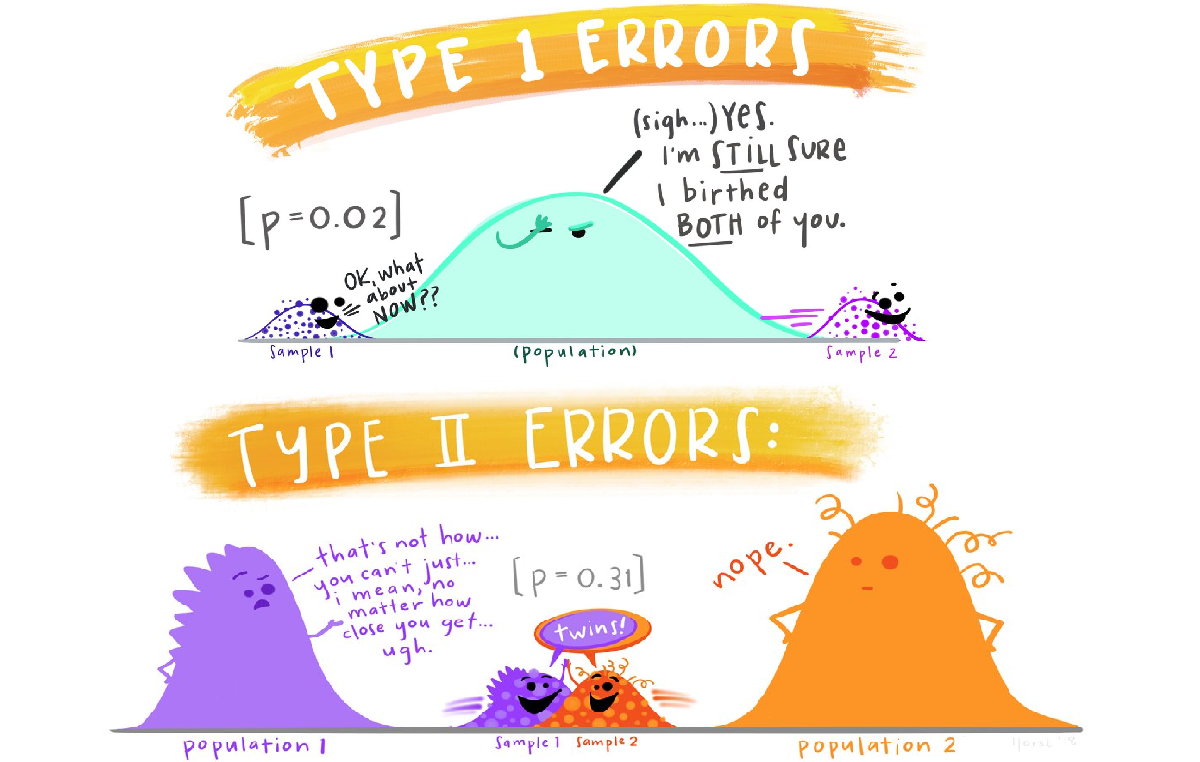 TYPE 1 ERRORS
(sigh...) Yes.
I'm STILL SURE
I birthed
BOTH of you.
[p = 0.02]
OK, what
about
NOW??
Sample 1
(population)
Sample 2
TYPE II ERRORS:
that's not how...
you can't just...
i mean, no
matter how
close you get...
ugh.
[p = 0.31]
twins!
nope.
population 1
Sample 1
Sample 2
population 2
Horst '18